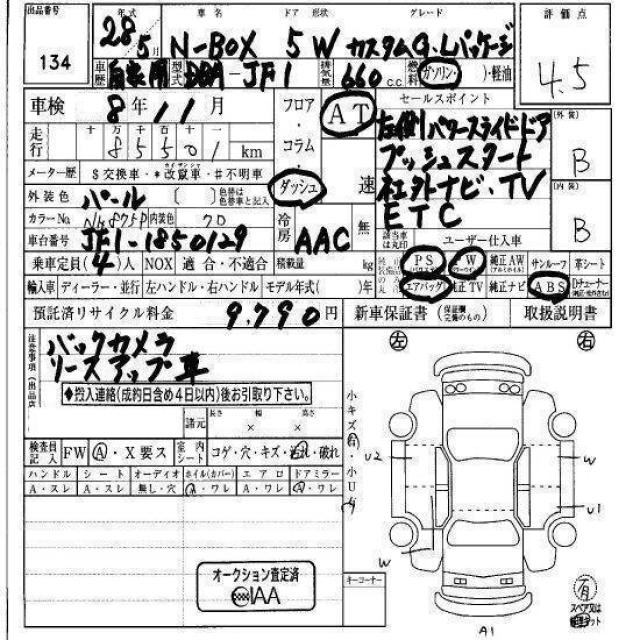 出品番号 年式 車名 ドア 形状 グレード 評価点
134 28 5月 N-BOX 5 W カスタムG・Lパッケージ 4.5
車歴 自家用 型式 DBA-JF1 排気量 660 c.c. 燃料 ガソリン・( )・軽油
車検 8年11月 フロア・コラム・ダッシュ AT 速 セールスポイント
走行 十 万 千 百 十 一
85501 km
左側パワースライドドア
プッシュスタート
社外ナビ・TV
ETC
外装 B
内装 B
メーター歴 $交換車・*改竄車・#不明車
外装色 パール [ ] 色替は色替車と記入
カラーNo. NH875P 内装色 冷房 AAC 無 該当車は丸印 ユーザー仕入車
車台番号 JF1-1850129
乗車定員(4)人 NOX 適合・不適合 積載量 kg PS PW 純正AW サンルーフ 革シート
輸入車 ディーラー・並行 左ハンドル・右ハンドル モデル年式( )年 エアバッグ 純正TV 純正ナビ ABS Dチューナー
預託済リサイクル料金 9,790円 新車保証書(保証欄完備のもの) 取扱説明書
注意事項(出品店)
バックカメラ
リースアップ車
◆搬入連絡(成約日含め4日以内)後お引取り下さい。
諸元 長さ × 幅 × 高さ
検査員記入 FW A・X要ス 室内シート コゲ・穴・キズ・汚れ・破れ
ハンドル シート オーディオ ホイル(カバー) エアロ ドアミラー
A・スレ A・スレ 無し・穴 A・ワレ A・ワレ A・ワレ
小キズ有・小U有
左 右
U2 W
U1
W
オークション査定済
IAA
キーコーナー
有
スペア又は
A1